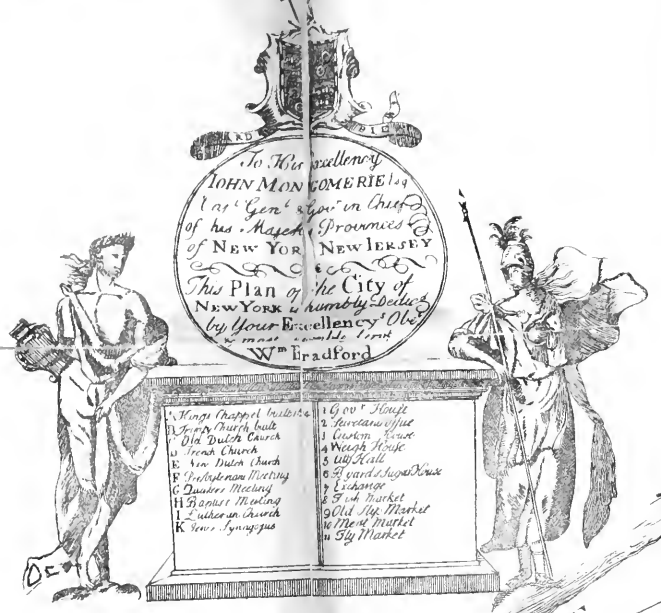 GARD BIEN
To His Excellency
IOHN MONTGOMERIE Esq
Capt Genl & Govr in Chief
of his Majesty's Provinces
of NEW YORK NEW IERSEY
&
This Plan of the City of
NEW YORK is humbly Dedicd
by Your Excellencys Obt
& most humble Servt
Wm Bradford
A Kings Chappel built
B Trinity Church built
C Old Dutch Church
D French Church
E New Dutch Church
F Presbyterian Meeting
G Quaker Meeting
H Baptist Meeting
I Lutheran Church
K Jews Synagogue
1 Govr House
2 Secretarys office
3 Custom House
4 Weigh House
5 City Hall
6 Byards Sugar House
7 Exchange
8 Fish Market
9 Old Slip Market
10 Meat Market
11 Fly Market